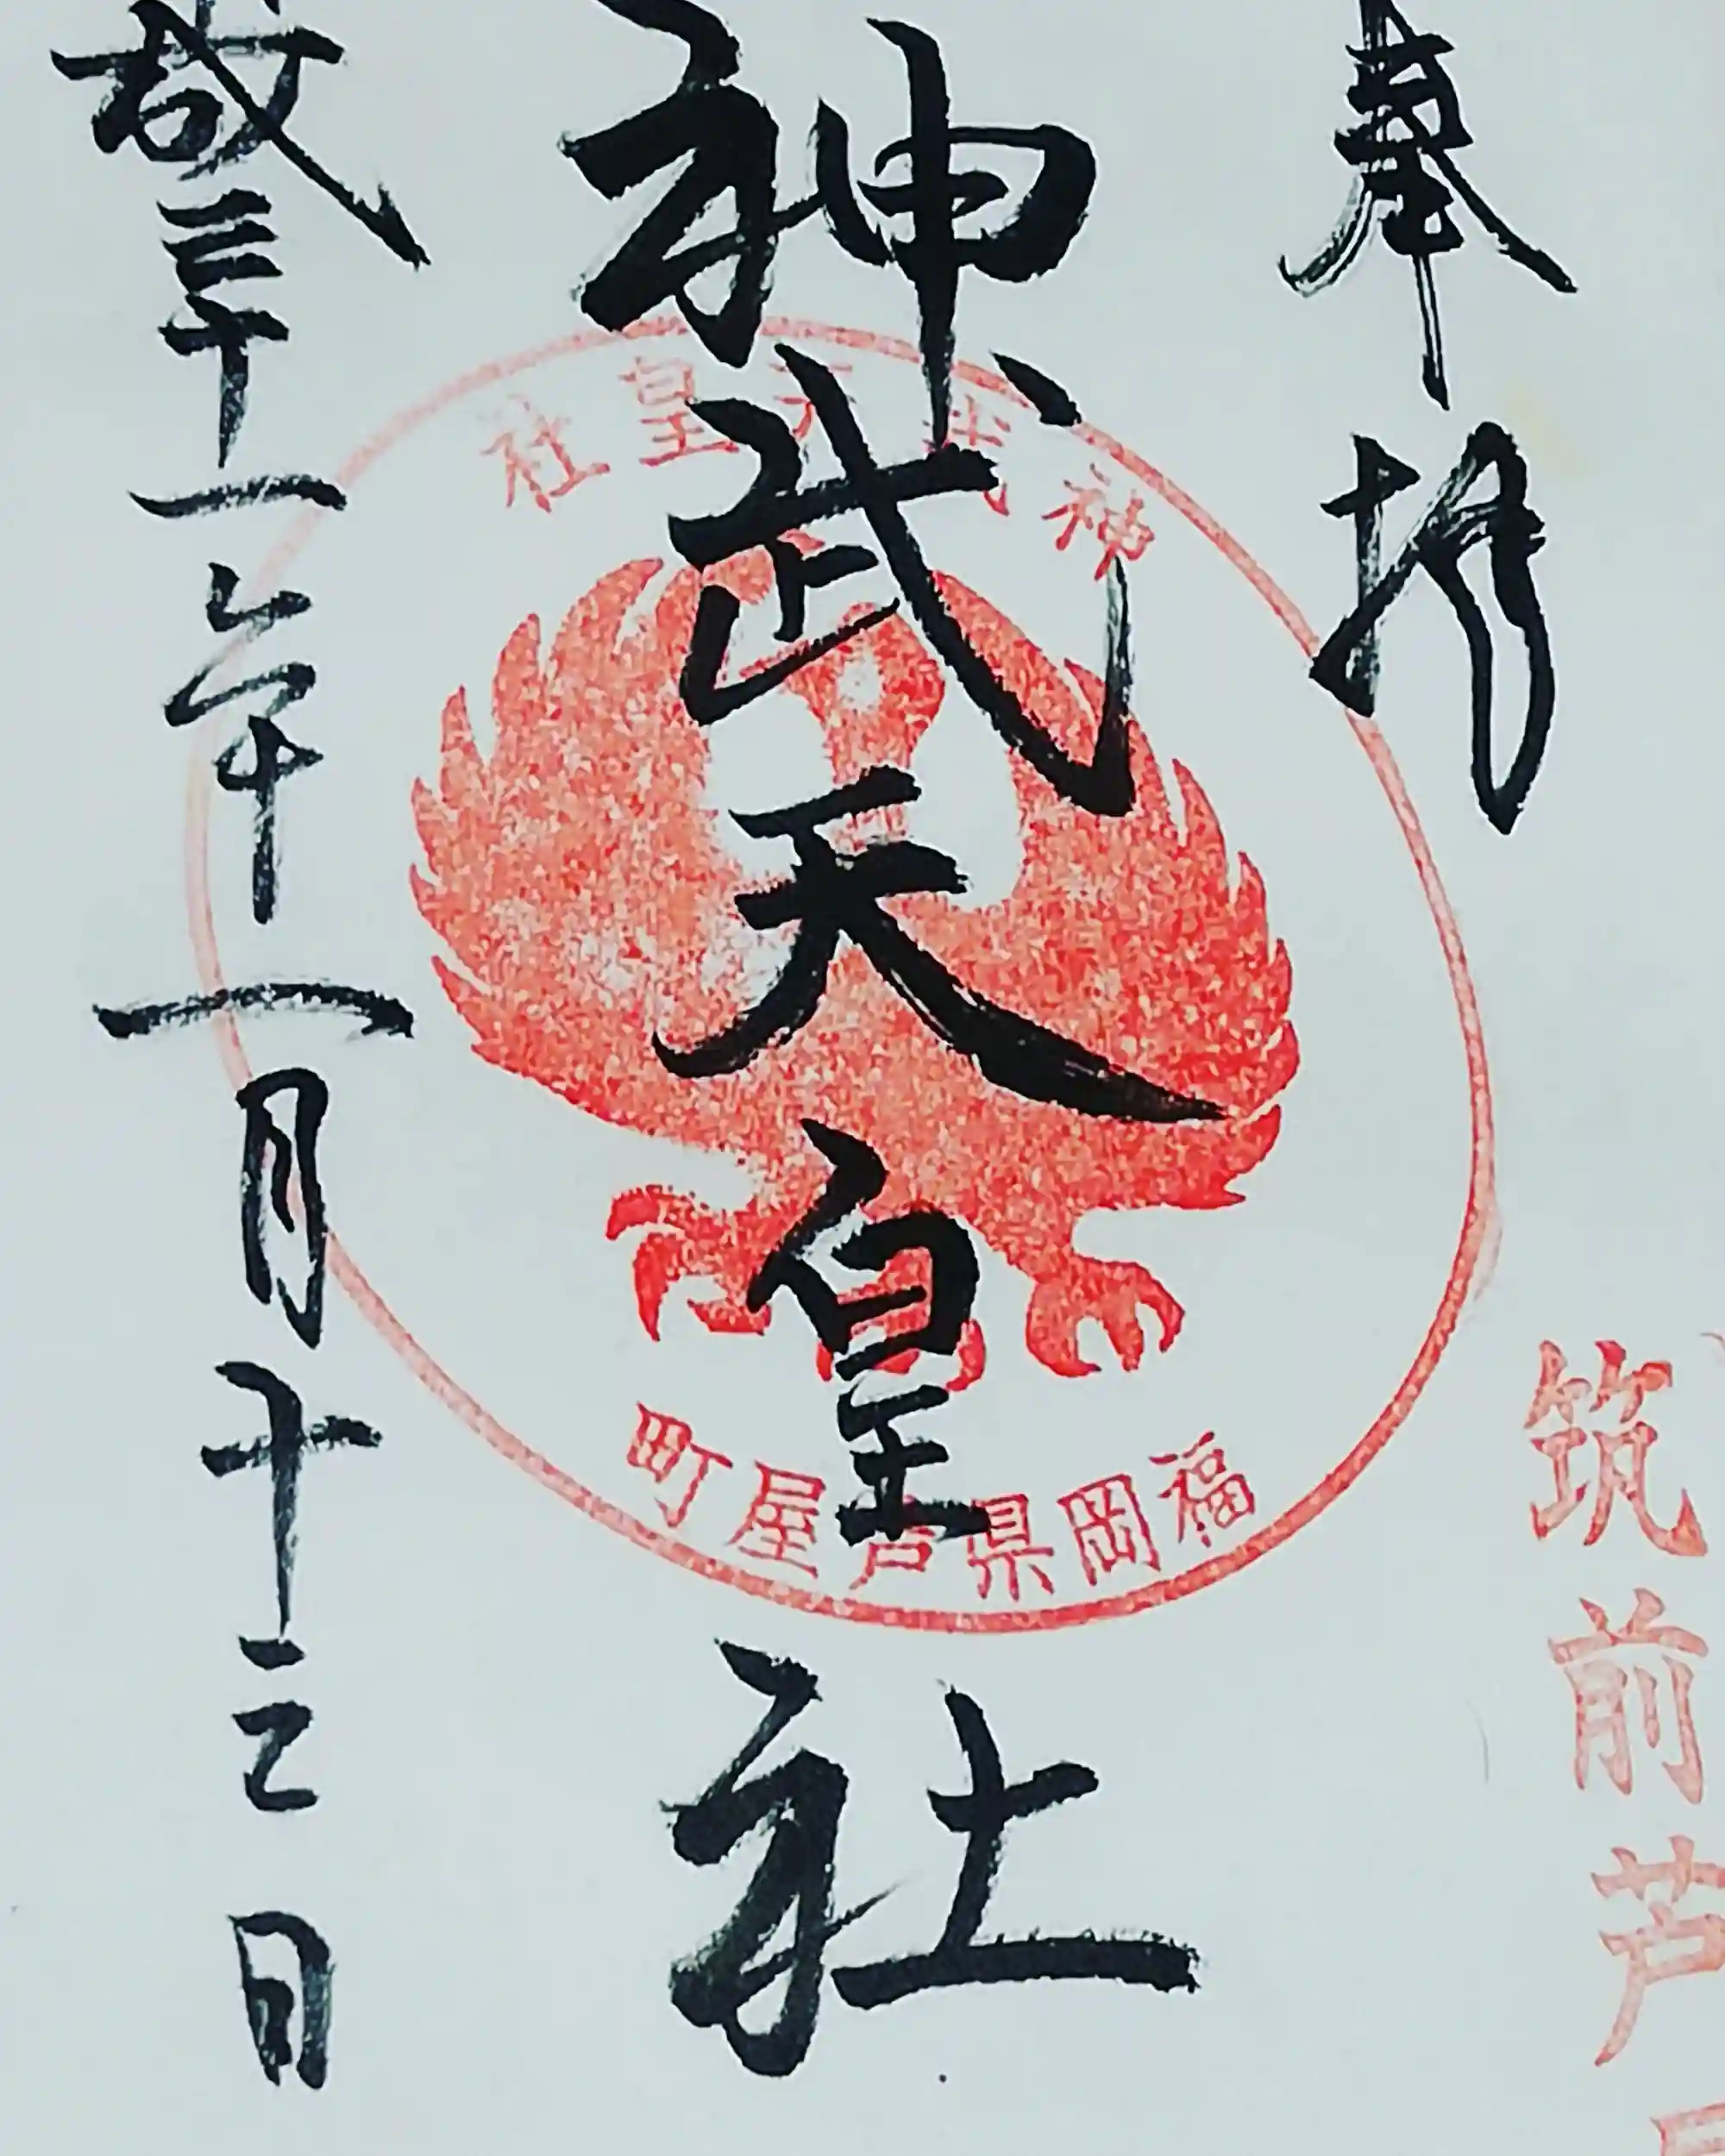 奉拝
神武天皇社
成三十一年一月十三日
神武天皇社
福岡県芦屋町
筑前芦屋